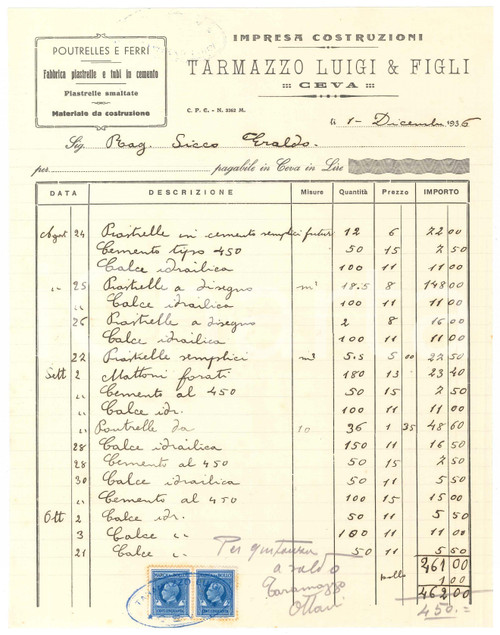 POUTRELLES E FERRI
Fabbrica piastrelle e tubi in cemento
Piastrelle smaltate
Materiale da costruzione
IMPRESA COSTRUZIONI
TARMAZZO LUIGI & FIGLI
CEVA
C. P. C. - N. 2362 M.
li 1- Dicembre 1936
Sig. Rag. Sicco Eraldo.
per pagabile in Ceva in Lire
DATA DESCRIZIONE Misure Quantità Prezzo IMPORTO
Agost 24 Piastrelle in cemento semplici 12 6 72 00
Cemento tipo 450 50 15 7 50
Calce idrailica 100 11 11 00
" 25 Piastrelle a disegno m² 18.5 8 148 00
Calce idrailica 100 11 11 00
26 Piastrelle a disegno 2 8 16 00
Calce idrailica 100 11 11 00
22 Piastrelle semplici 5.5 5 00 27 50
Sett 2 Mattoni forati 180 13 23 40
" Cemento al 450 50 15 7 50
" Calce idr. 100 11 11 00
" Poutrelle da 10 36 1 35 48 60
28 Calce idrailica 150 11 16 50
28 Cemento al 450 50 15 7 50
30 Calce idrailica 50 11 5 50
" Cemento al 450 100 15 15 00
Ott 2 Calce idr. 50 11 5 50
3 Calce " 100 11 11 00
21 Calce " 50 11 5 50
461 00
bollo 1 00
462 00
450.=
Per quitanza
a saldo
Taramazzo